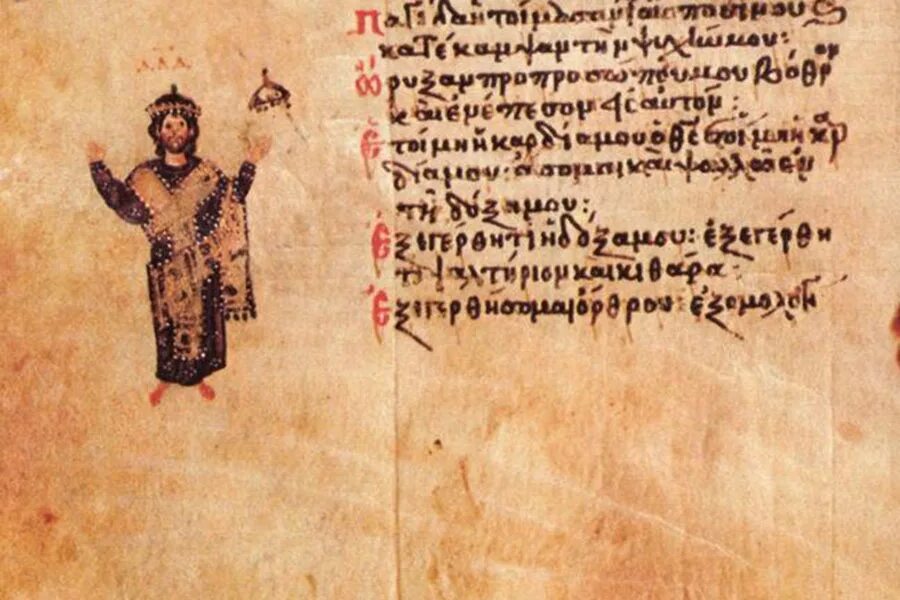 Δᾱδ
παγίδα ἡτοίμασαν τοῖς ποσί μου ς
κατέκαμψαν τὴν ψυχήν μου:
ὤρυξαν πρὸ προσώπου μου βόθρον
καὶ ἐνέπεσον εἰς αὐτόν:
ἑτοίμη ἡ καρδία μου ὁ θς ἑτοίμη ἡ καρ
δία μου· ἄσομαι καὶ ψαλῶ ἐν
τῇ δόξα μου:
ἐξεγέρθητι ἡ δόξα μου: ἐξεγέρθη
τι ψαλτήριον καὶ κιθάρα·
ἐξεγερθήσομαι ὄρθρου: ἐξομολογή